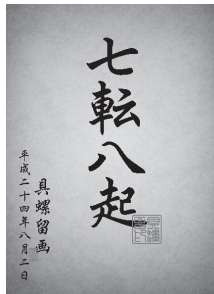 七転八起
具螺留画
平成二十四年八月二日